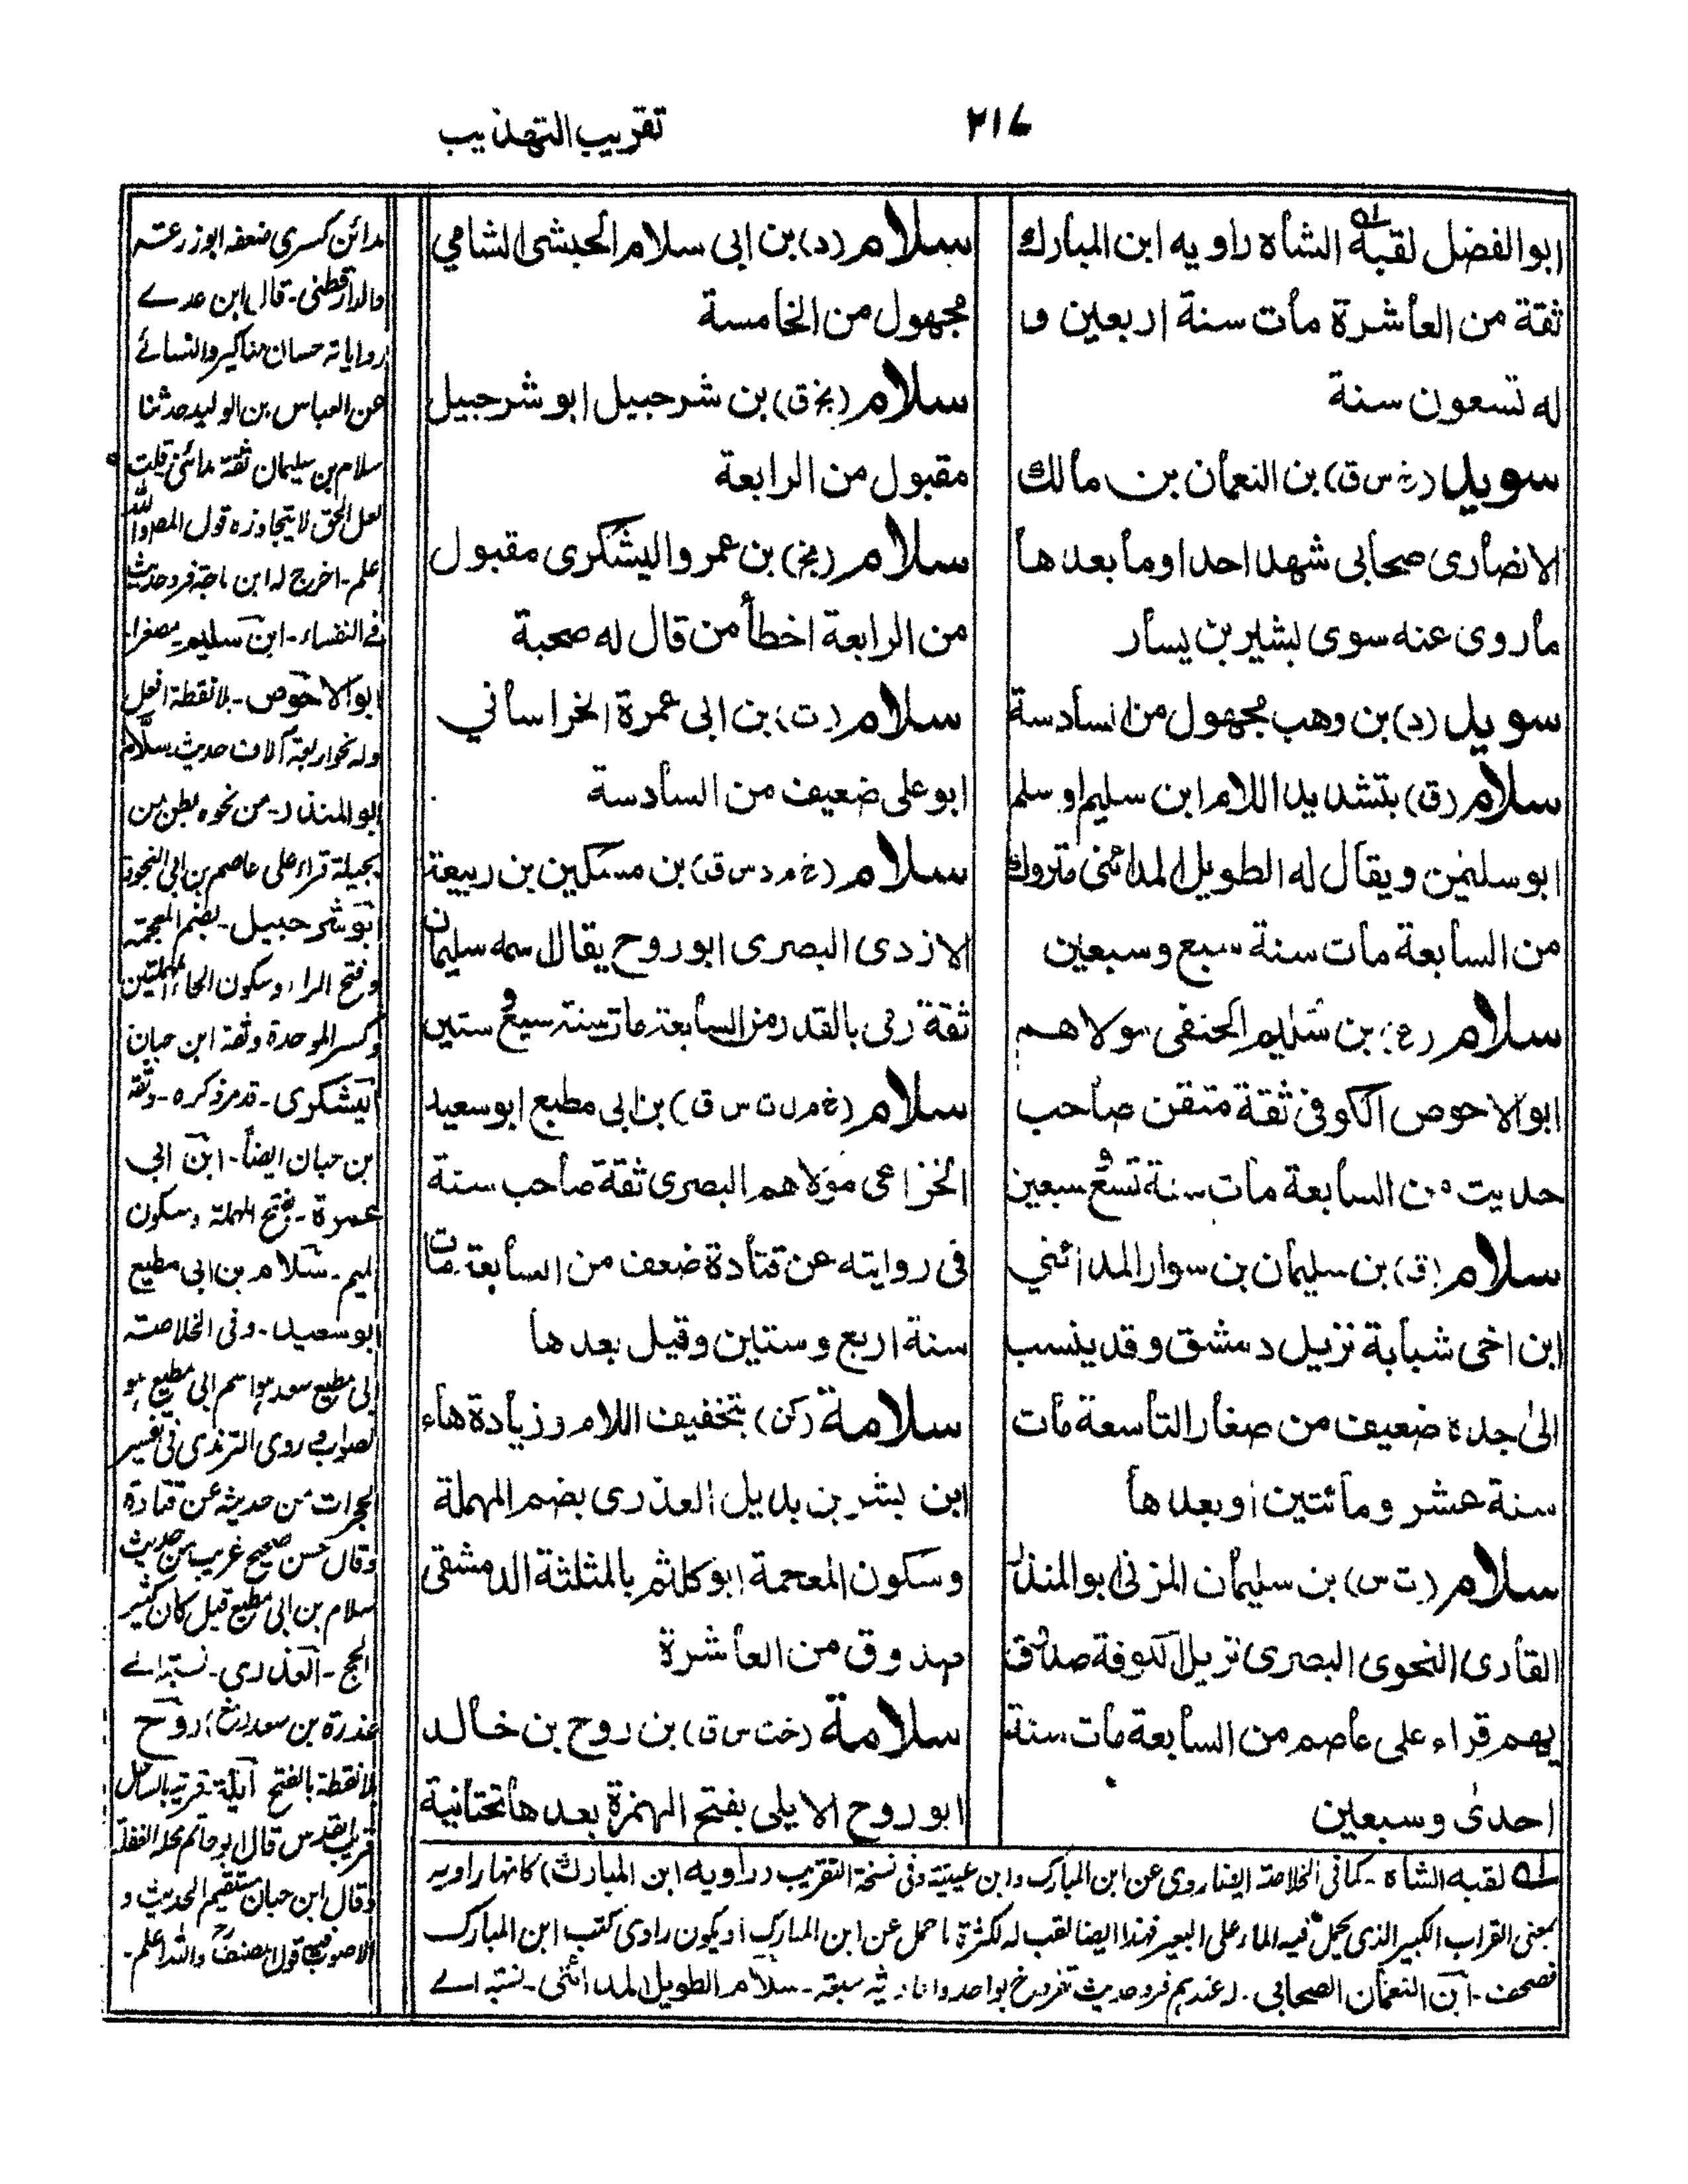 ٢١٤ تقريب التهذيب
ابوالفضل لقبه الشاه راويه ابن المبارك
ثقة من العاشرة مات سنة اربعين و
له تسعون سنة
سويد (خ س ق) بن النعمان بن مالك
الانصارى صحابى شهد احدا وما بعدها
ماروى عنه سوى بشير بن يسار
سويد (د) بن وهب مجهول من السادسة
سلام (ق) بتشديد اللام ابن سليم او سلم
ابو سليمن ويقال له الطويل المدائنى متروك
من السابعة مات سنة سبع وسبعين
سلام (ع) بن سليم الحنفى مولاهم
ابوالاحوص الكوفى ثقة متقن صاحب
حديث من السابعة مات سنة تسع وسبعين
سلام (ق) بن سليمان بن سوار المدائني
ابن اخى شبابة نزيل دمشق وقد ينسب
الى جده ضعيف من صغار التاسعة مات
سنة عشر ومائتين او بعدها
سلام (ت س) بن سليمان المزنى ابوالمنذر
القارى النحوى البصرى نزيل الكوفة صدوق
يهم قراء على عاصم من السابعة مات سنة
احدى وسبعين
سلام (د) بن ابى سلام الحبشى الشامي
مجهول من الخامسة
سلام (بخ ق) بن شرحبيل ابو شرحبيل
مقبول من الرابعة
سلام (بخ) بن عمرو اليشكرى مقبول
من الرابعة اخطأ من قال له صحبة
سلام (ت) بن ابى عمرة الخراساني
ابوعلى ضعيف من السادسة
سلام (خ م د س ق) بن مسكين بن ربيعة
الازدى البصرى ابوروح يقال اسمه سليمان
ثقة رمى بالقدر من السابعة مات سنة سبع و ستين
سلام (خ م ل ت س ق) بن ابى مطيع ابوسعيد
الخزاعى مولاهم البصرى ثقة صاحب سنة
فى روايته عن قتادة ضعف من السابعة مات
سنة اربع وستين وقيل بعدها
سلامة (كن) بتخفيف اللام وزيادة هاء
ابن بشر بن بديل العذرى بضم المهملة
وسكون المعجمة ابوكلثم بالمثلثة الدمشقى
صدوق من العاشرة
سلامة (خت س ق) بن روح بن خالد
ابوروح الايلى بفتح الهمزة بعدها تحتانية
مدائن كسرى ضعفه ابوزرعته
والدارقطنى - قال ابن عدے
رواياته حسان مناكير والنسائے
عن العباس بن الوليد حدثنا
سلام بن سليمان ثقة مدائنى قلت
لعل الحق لا يتجاوزه قول المصر والله
اعلم - اخرج له ابن ماجة فرد حديث
فے النفساء - ابن سليم - مصغرا
ابوالاحوص - بلا نقطة افعل
وله نحو اربعة آلاف حديث سلّام
ابوالمنذر - من نحوه بطن من
بجيلة قراء على عاصم بن ابى النجود
ابو شرحبيل - بضم المعجمة
وفتح الراء وسكون الحاء المهملتين
وكسر الموحدة وثقه ابن حبان
اليشكرى - قد مر ذكره - وثقه
بن حبان ايضاً - ابن ابى
عمرة - بفتح المهملة وسكون
الميم - سلام بن ابى مطيع
ابو سعيد - وفى الخلاصته
ابى مطيع سعد هو اسم ابى مطيع هو
الصواب روى الترمذى فى تفسير
الحجرات من حديثه عن قتادة
وقال حسن صحيح غريب من حديث
سلام بن ابى مطيع قيل كان كثير
الحج - العذرى - نسبته الے
عذرة بن سعد روح
بلا نقطة بالفتح ايلة قرية بالساحل
قريب القدس قال ابوحاتم محله الغفلة
وقال ابن حبان مستقيم الحديث و
الاصوب فيه قول المصنف رح والله اعلم -
له لقبه الشاه - كما فى الخلاصة ايضا روى عن ابن المبارك وابن عيينة وفى نسخة التقريب (راويه ابن المبارك) كانها راويه
بمعنى القراب الكبير الذى يحمل فيه الماء على البعير فهذا ايضا لقب له لكثرة ما حمل عن ابن المبارك او يكون راوى كتب ابن المبارك
فصحف - ابن النعمان الصحابى - له عندهم فرد حديث تفرد خ بواحد سبعة - سلام الطويل المدائنى - نسبته الے